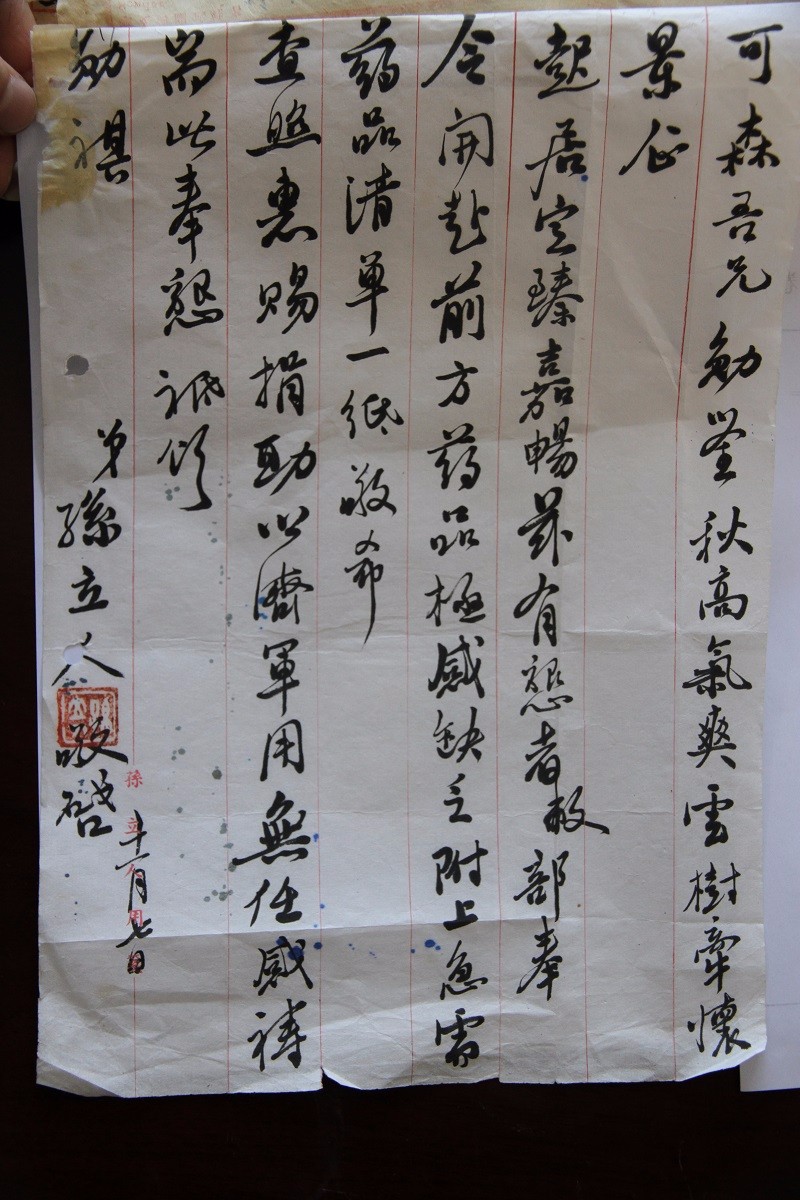 可森吾兄勛鑒秋高氣爽雲樹牽懷
景企
起居定臻嘉暢茲有懇者敝部奉
令開赴前方药品極感缺乏附上急需
药品清单一紙敬希
查照惠賜捐助以濟軍用無任感禱
耑此奉懇祇頌
勛祺
弟孫立人敬啓
十一月七日